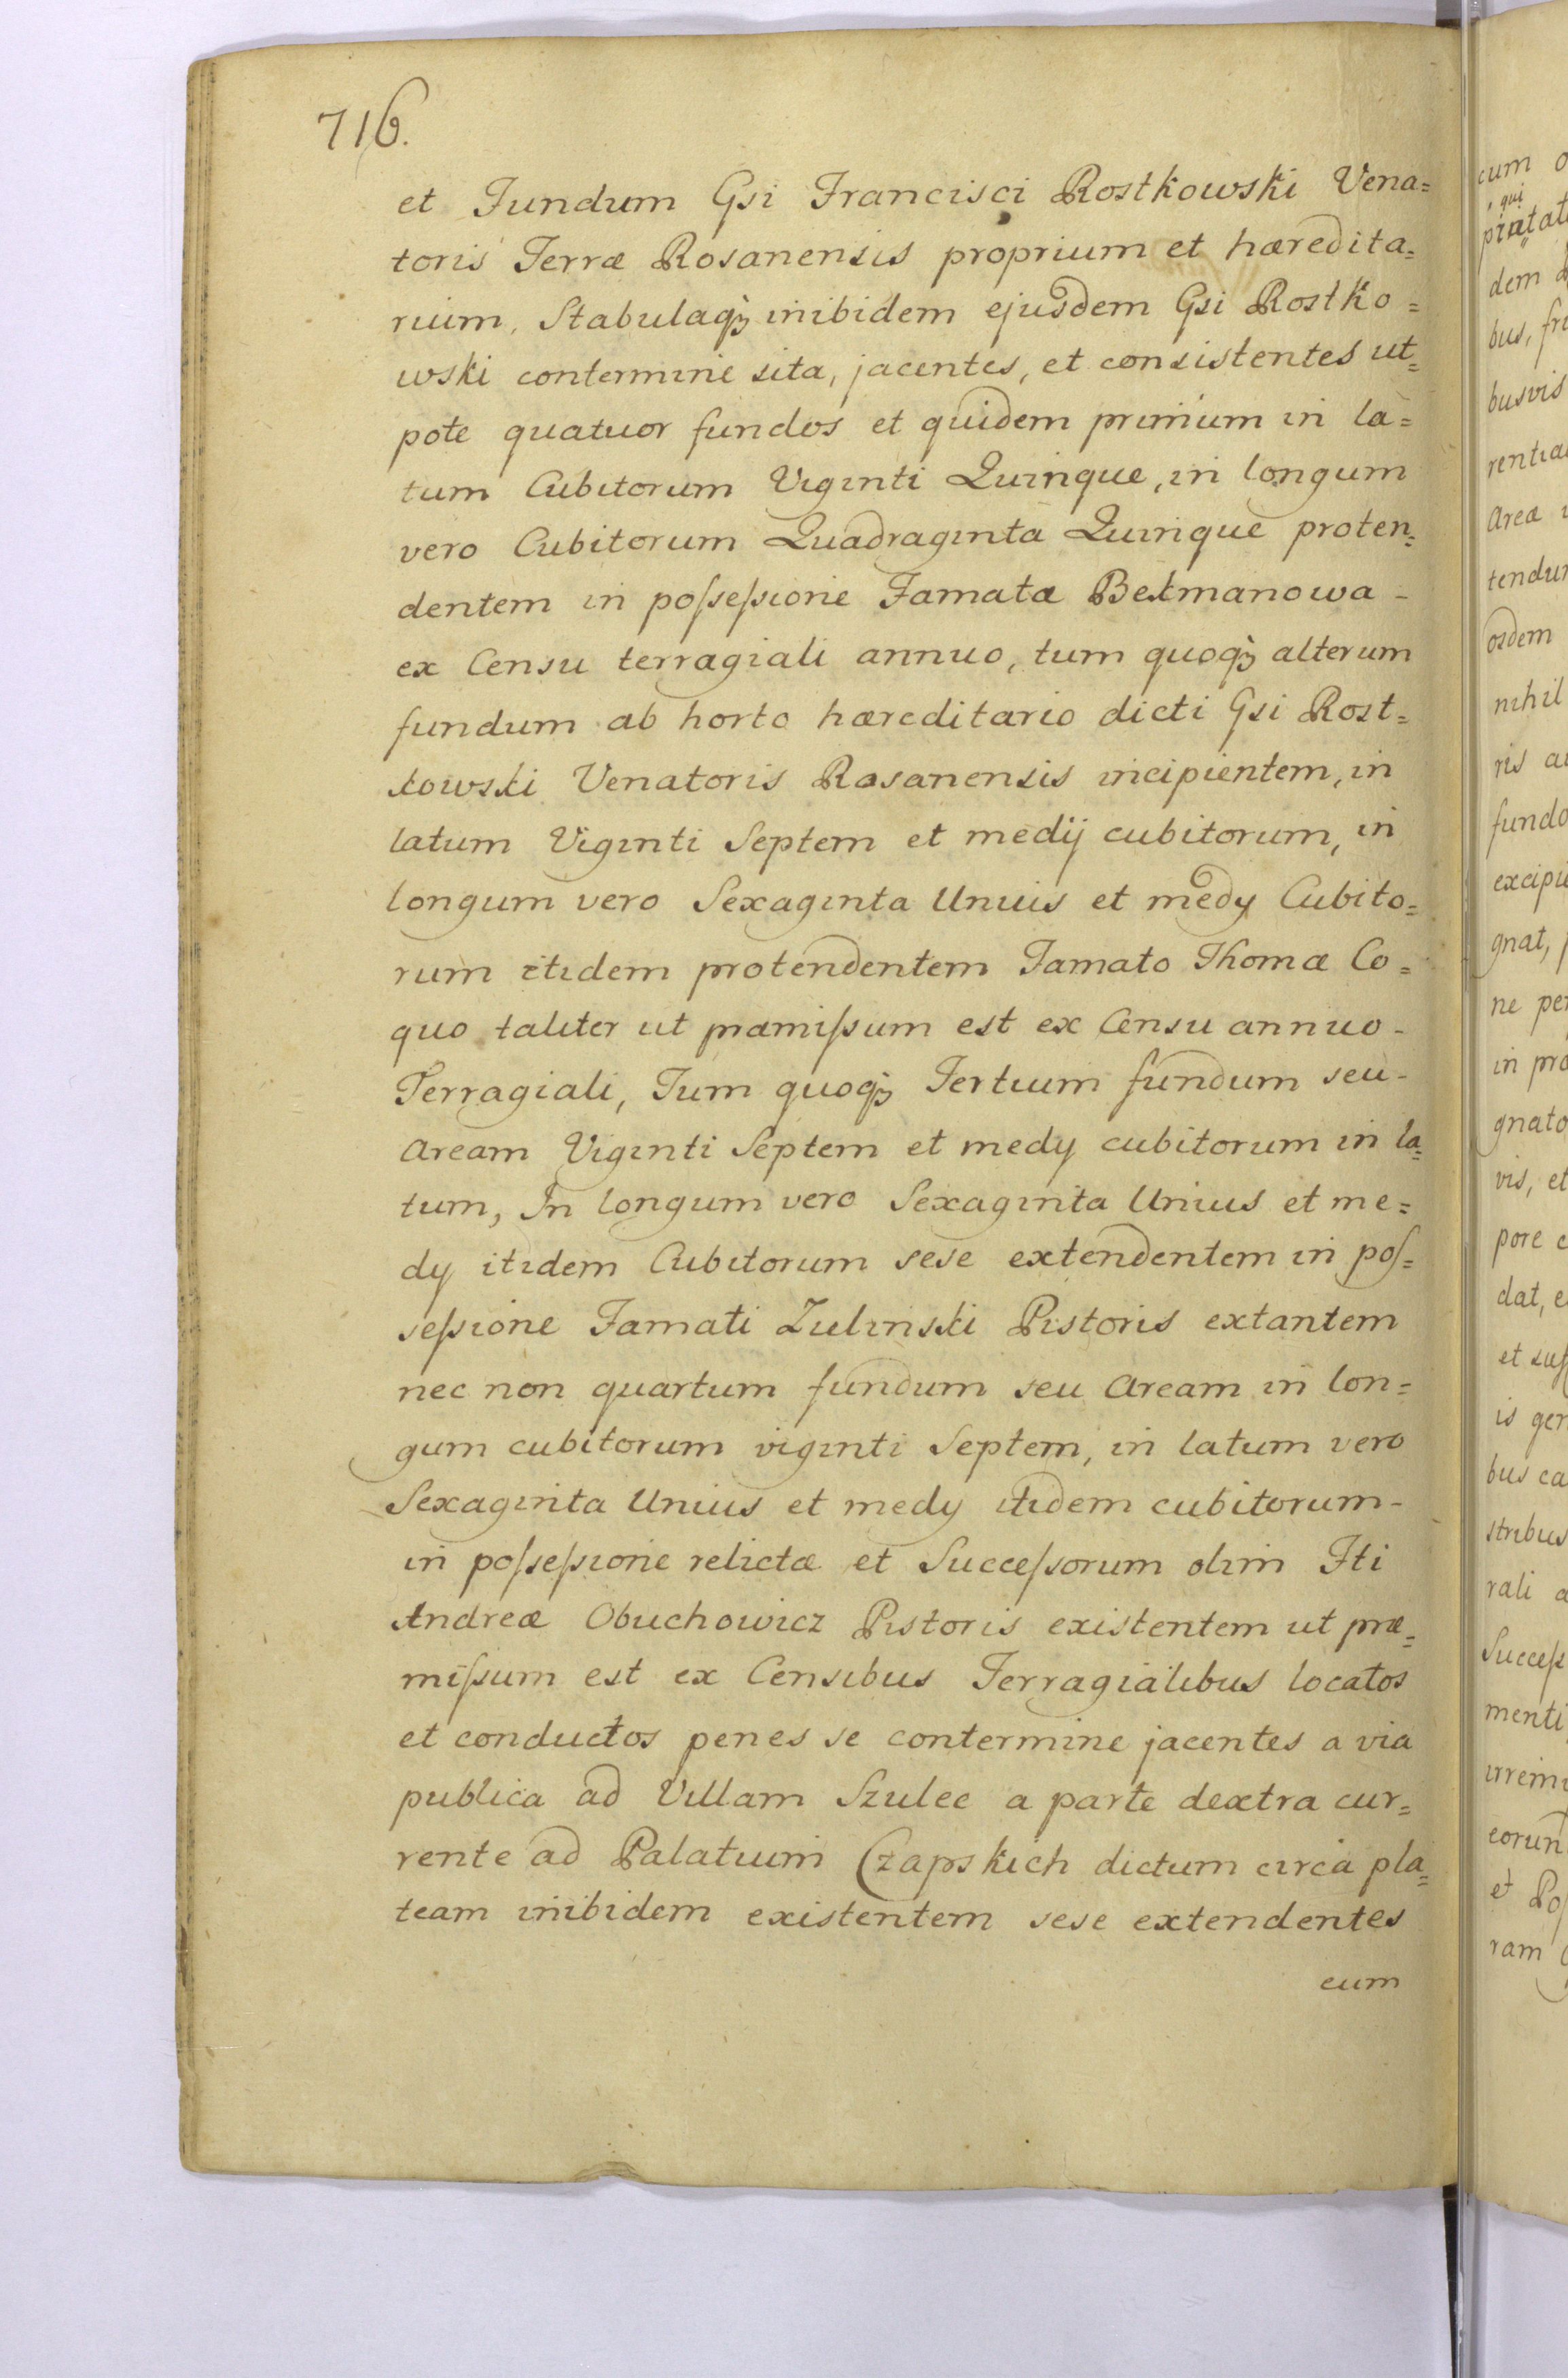 716.
et Fundum Gsi Francisci Rostkowski Vena=
toris Terræ Rosanensis proprium et hæredita=
rium, Stabulaqꝫ inibidem ejusdem Gsi Rostko=
wski contermine sita, jacentes, et consistentes ut=
pote quatuor fundos et quidem primum in la=
tum Cubitorum Viginti Quinque, in longum
vero Cubitorum Quadraginta Quinque proten=
dentem in poſseſsione Famatæ Bekmanowa -
ex Censu terragiali annuo, tum quoqꝫ alterum
fundum ab horto hæreditario dicti Gsi Rost=
kowski Venatoris Rosanensis incipientem, in
latum Viginti Septem et medij cubitorum, in
longum vero Sexaginta Unius et medy Cubito=
rum itidem protendentem Famato Thomæ Co=
quo taliter ut præmiſsum est ex Censu annuo -
Terragiali, Tum quoqꝫ Tertium fundum seu -
Aream Viginti Septem et medy cubitorum in la=
tum, In longum vero Sexaginta Unius et me=
dy itidem Cubitorum sese extendentem in poſ=
seſsione Famati Zulinski Pistoris extantem
nec non quartum fundum seu Aream in lon=
gum cubitorum viginti Septem, in latum vero
Sexaginta Unius et medy itidem cubitorum -
in poſseſsione relictæ et Succeſsorum olim Fti
Andreæ Obuchowicz Pistoris existentem ut præ=
miſsum est ex Censibus Terragialibus locatos
et conductos penes se contermine jacentes a via
publica ad Villam Szulec a parte dextra cur=
rente ad Palatium Czapskich dictum circa pla=
team inibidem existentem sese extendentes
cum